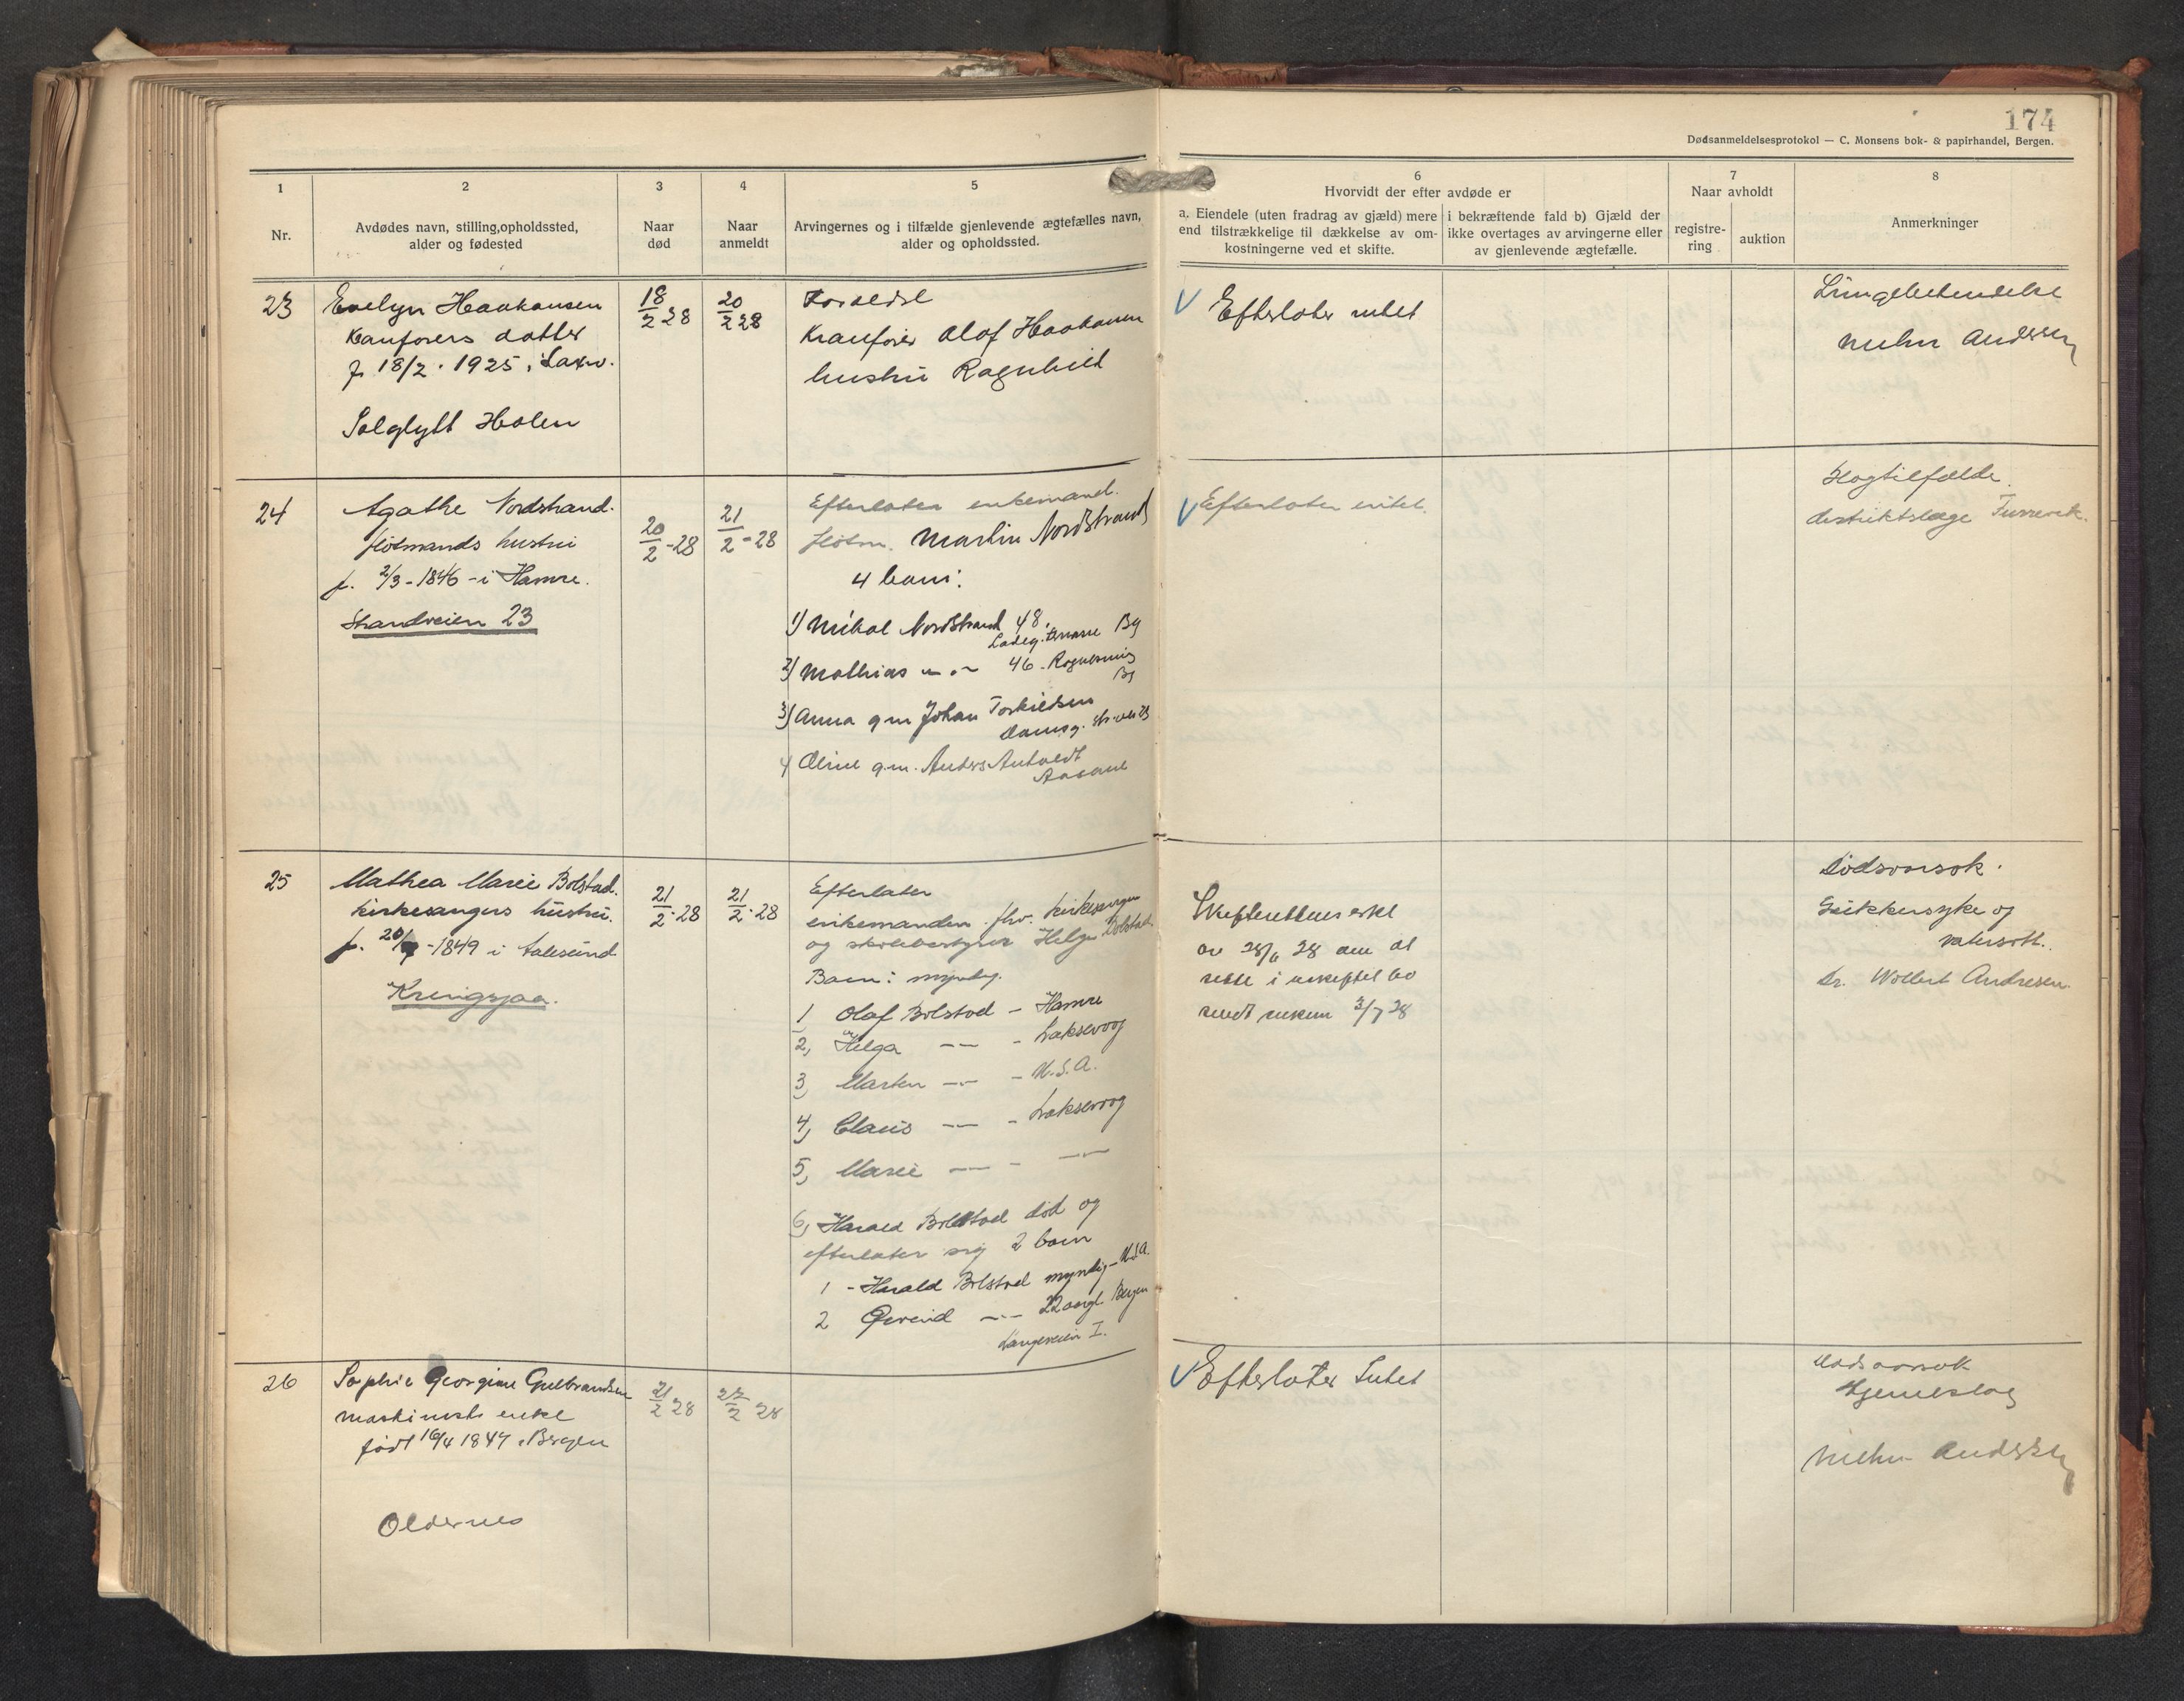 174
Dødsanmeldelsesprotokol — C. Monsens bok- & papirhandel, Bergen.
1
Nr.
2
Avdødes navn, stilling, opholdssted,
alder og fødested
3
Naar
død
4
Naar
anmeldt
5
Arvingernes og i tilfælde gjenlevende ægtefælles navn,
alder og opholdssted.
6
Hvorvidt der efter avdøde er
a. Eiendele (uten fradrag av gjæld) mere
end tilstrækkelige til dækkelse av om-
kostningerne ved et skifte.
i bekræftende fald b) Gjæld der
ikke overtages av arvingerne eller
av gjenlevende ægtefælle.
7
Naar avholdt
registre-
ring
auktion
8
Anmerkninger
23
Evelyn Haakansen
Kranførers datter
f. 18/2 . 1925 i Laxv.
Solglytt Holen
18/2 28
20/2 28
Foreldre
Kranfører Olaf Haakansen
hustru Ragnhild
Efterlater intet
Lungebetendelse
Andersen
24
Agathe Nordstrand.
fløtmands hustru
f. 2/3 - 1846 - i Hamre.
Strandveien 23
20/2 - 28
21/2 - 28
Efterlater enkemand.
fløtm. Martin Nordstrand
4 barn:
1) Mikal Nordstrand 48,
Ladeg. terrasse Bg
2) Mathias — " — 46 -
Bg
3) Anna g m Johan Torkildsen
Damsg.
4 Oline g.m. Anders
Aasane
Efterlater intet.
Slagtilfælde.
distriktslæge
25
Mathea Marie Bolstad.
kirkesangers hustru.
f. 20/9 - 1849 i Aalesund
Kringsjaa.
21/2 - 28
21/2 - 28
Efterlater
enkemanden fhv. kirkesanger
og skolebestyrer Helge Bolstad
Barn: myndig.
1 Olaf Bolstad - Hamre
2, Helga — " — - Laksevaag
3, Marten — " — - U.S.A.
4, Claus — " — - Laksevaag
5, Marie — " — - — " —
6, Harald Bolstad død og
efterlater sig 2 barn
1 - Harald Bolstad myndig - U.S.A.
2 Øivind — " — 22 aar gl. Bergen
I.
Skifterettens erkl
av 28/6 28 om at
sitte i uskiftet bo
sendt enkem 3/7 28
Dødsaarsak.
Sukkersyke og
vatersott.
Dr. Wollert Andresen.
26
Sophie Georgine Gulbrandsen
maskinists enke
født 16/4 1847 i Bergen
Oldernes
21/2 28
22/2 28
Efterlater Intet
dødsaarsak
Hjerneslag
Andersen